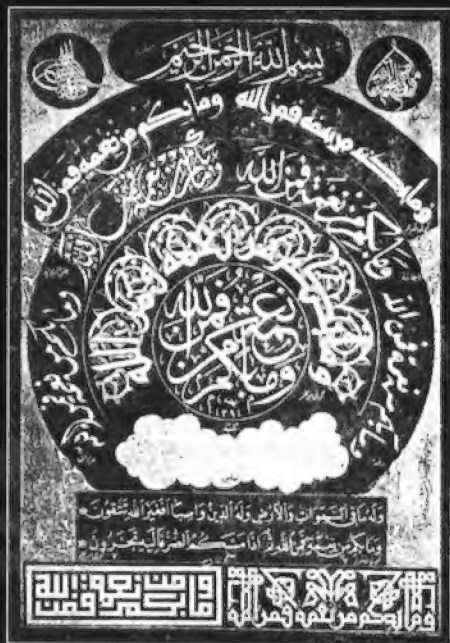 بسم الله الرحمن الرحيم
وما بكم من نعمه فمن الله وما بكم من نعمه فمن الله
وما بكم من نعمة فمن الله وما بكم من نعمة فمن الله
وما بكم من نعمه فمن الله
وما بكم من نعمه فمن الله
وما بكم من نعمة فمن الله
وما بكم من نعمة فمن الله
وله ما في السموات والأرض وله الدين واصبا أفغير الله تتقون
وما بكم من نعمة فمن الله ثم إذا مسكم الضر فإليه تجئرون
وما بكم من نعمه فمن الله
وما بكم من نعمة فمن الله